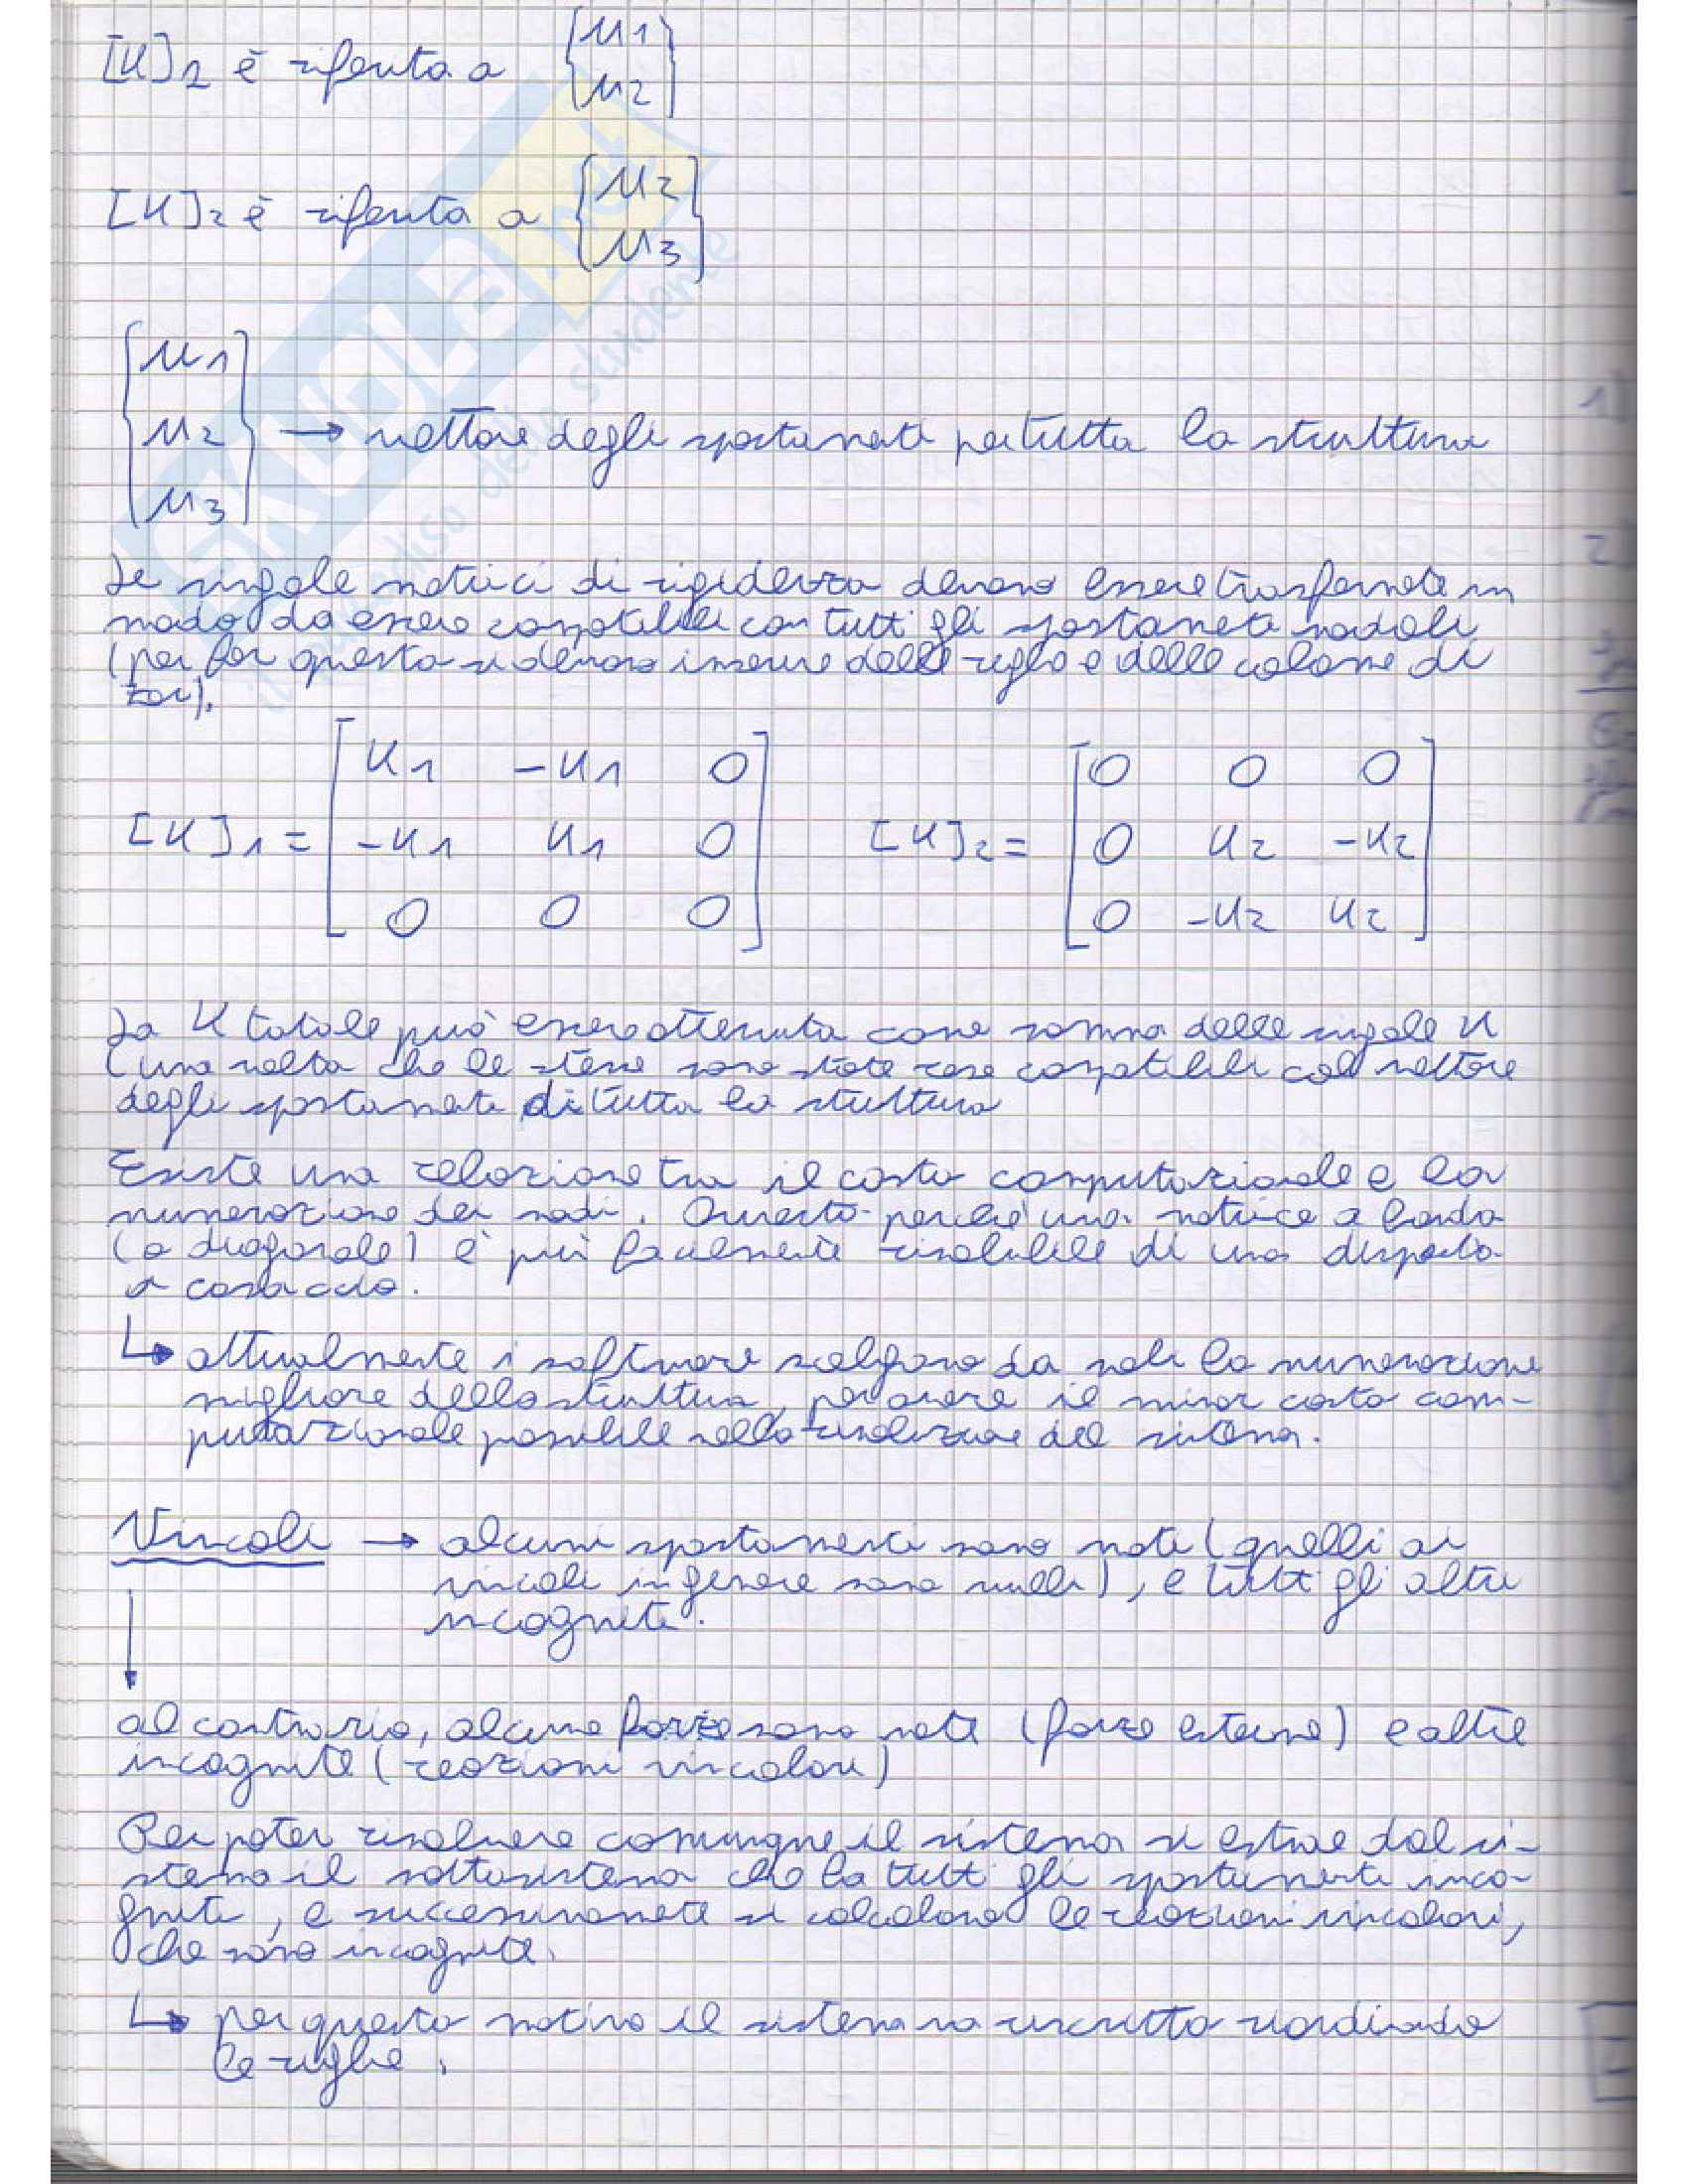 [K]1 è riferita a {u1
u2}
[K]2 è riferita a {u2
u3}
{u1
u2
u3} → vettore degli spostamenti per tutta la struttura
Le singole matrici di rigidezza devono essere trasformate in
modo da essere compatibili con tutti gli spostamenti nodali
(per far questo si devono inserire delle righe e delle colonne di
zeri).
[K]1 = [K1 -K1 0
-K1 K1 0
0 0 0]
[K]2 = [0 0 0
0 K2 -K2
0 -K2 K2]
La K totale può essere ottenuta come somma delle singole K
(una volta che le stesse sono state rese compatibili col vettore
degli spostamenti di tutta la struttura
Esiste una relazione tra il costo computazionale e la
numerazione dei nodi. Questo perché una matrice a banda
(o diagonale) è più facilmente risolubile di una disposta
a casaccio.
↳ attualmente i software scelgono da soli la numerazione
migliore della struttura, per avere il minor costo com-
putazionale possibile nella risoluzione del sistema.
Vincoli → alcuni spostamenti sono noti (quelli ai
vincoli in genere sono nulli), e tutti gli altri
incogniti.
↓
al contrario, alcune forze sono note (forze esterne) e altre
incognite (reazioni vincolari)
Per poter risolvere comunque il sistema si estrae dal si-
stema il sottosistema che ha tutti gli spostamenti inco-
gniti, e successivamente si calcolano le reazioni vincolari,
che sono incognite.
↳ per questo motivo il sistema va riscritto riordinando
le righe.
SKUOLA.net
il paradiso dello studente